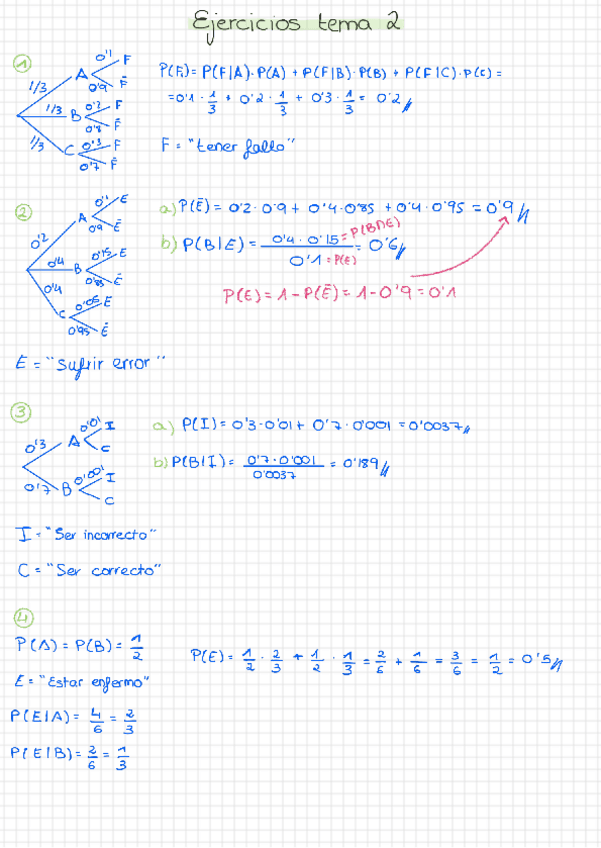 Ejercicios tema 2
1
1/3 A 0'1 F
0'9 F̄
1/3 B 0'2 F
0'8 F̄
1/3 C 0'3 F
0'7 F̄
P(F) = P(F|A)·P(A) + P(F|B)·P(B) + P(F|C)·P(C) =
= 0'1 · 1/3 + 0'2 · 1/3 + 0'3 · 1/3 = 0'2
F = "tener fallo"
2
0'2 A 0'1 E
0'9 Ē
0'4 B 0'15 E
0'85 Ē
0'4 C 0'05 E
0'95 Ē
a) P(Ē) = 0'2 · 0'9 + 0'4 · 0'85 + 0'4 · 0'95 = 0'9
b) P(B|E) = 0'4 · 0'15 = P(B∩E) / 0'1 = P(E) = 0'6
P(E) = 1 - P(Ē) = 1 - 0'9 = 0'1
E = "Sufrir error"
3
0'3 A 0'01 I
C
0'7 B 0'001 I
C
a) P(I) = 0'3 · 0'01 + 0'7 · 0'001 = 0'0037
b) P(B|I) = 0'7 · 0'001 / 0'0037 = 0'189
I = "Ser incorrecto"
C = "Ser correcto"
4
P(A) = P(B) = 1/2
P(E) = 1/2 · 2/3 + 1/2 · 1/3 = 2/6 + 1/6 = 3/6 = 1/2 = 0'5
E = "Estar enfermo"
P(E|A) = 4/6 = 2/3
P(E|B) = 2/6 = 1/3